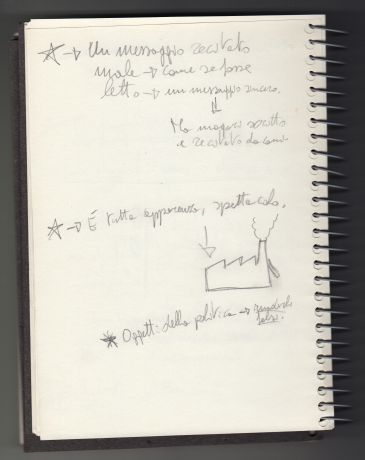 ☆ → Un messaggio recitato
male → come se fosse
letto → un messaggio sincero.
⇓
Ma magari scritto
e recitato da
☆ → È tutta apparenza, spettacolo.
↓
✴ Oggetti della politica →